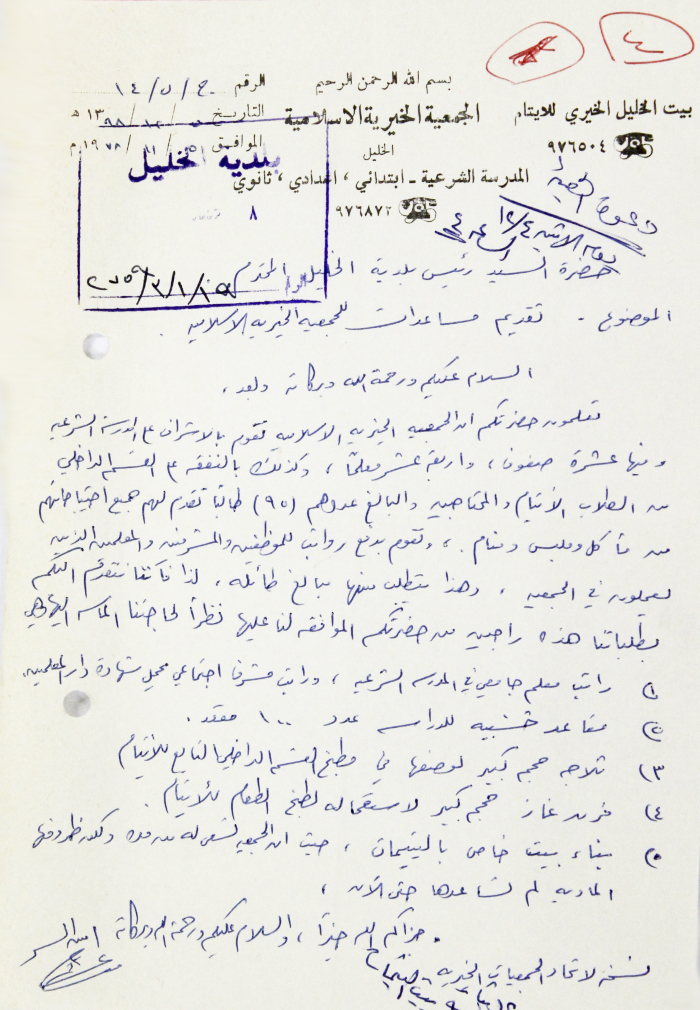 ٤
بسم الله الرحمن الرحيم
الرقم ج / ٥ / ١٤
بيت الخليل الخيري للايتام
الجمعية الخيرية الاسلامية
التاريخ / / ١٣٩٨ هـ
٩٧٦٥٠٤
الخليل
الموافق / ١١ / ١٩٧٨ م
بلدية الخليل
المدرسة الشرعية - ابتدائي ، اعدادي ، ثانوي
٩٧٦٨٧٢
٨
يوم الاثنين ١٢/٤
حضرة السيد رئيس بلدية الخليل المحترم
الموضوع - تقديم مساعدات للجمعية الخيرية الاسلامية .
السلام عليكم ورحمة الله وبركاته وبعد ،
تعلمون حضرتكم ان الجمعية الخيرية الاسلامية تقوم بالاشراف على المدرسة الشرعية
وفيها عشرة صفوف ، واربعة عشر معلماً ، وكذلك بالنفقة على القسم الداخلي
من الطلاب الأيتام والمحتاجين والبالغ عددهم (٩٥) طالباً تقدم لهم جميع احتياجاتهم
من مأكل وملبس ومنام ، وتقوم بدفع رواتب للموظفين والمشرفين والمعلمين الذين
يعملون في الجمعية ، وهذا يتطلب منها مبالغ طائلة ، لذا فاننا نتقدم اليكم
بطلباتنا هذه راجين من حضرتكم الموافقة لنا عليها نظراً لحاجتنا الماسة اليها وهي
١) راتب معلم جامعي في المدرسة الشرعية ، وراتب مشرف اجتماعي يحمل شهادة دار المعلمين .
٢) مقاعد خشبية للدراسة عدد ١٠٠ مقعد .
٣) ثلاجة حجم كبير لوضعها في مطبخ القسم الداخلي التابع للأيتام
٤) فرن غاز حجم كبير لاستعماله لطبخ الطعام للأيتام .
٥) بناء بيت خاص باليتيمات ، حيث ان الجمعية تسعى له من مدة ولكن ظروفها
المادية لم تساعدها حتى الآن ،
وجزاكم الله خيراً ، والسلام عليكم ورحمة الله وبركاته
امين السر
نسخة لاتحاد الجمعيات الخيرية